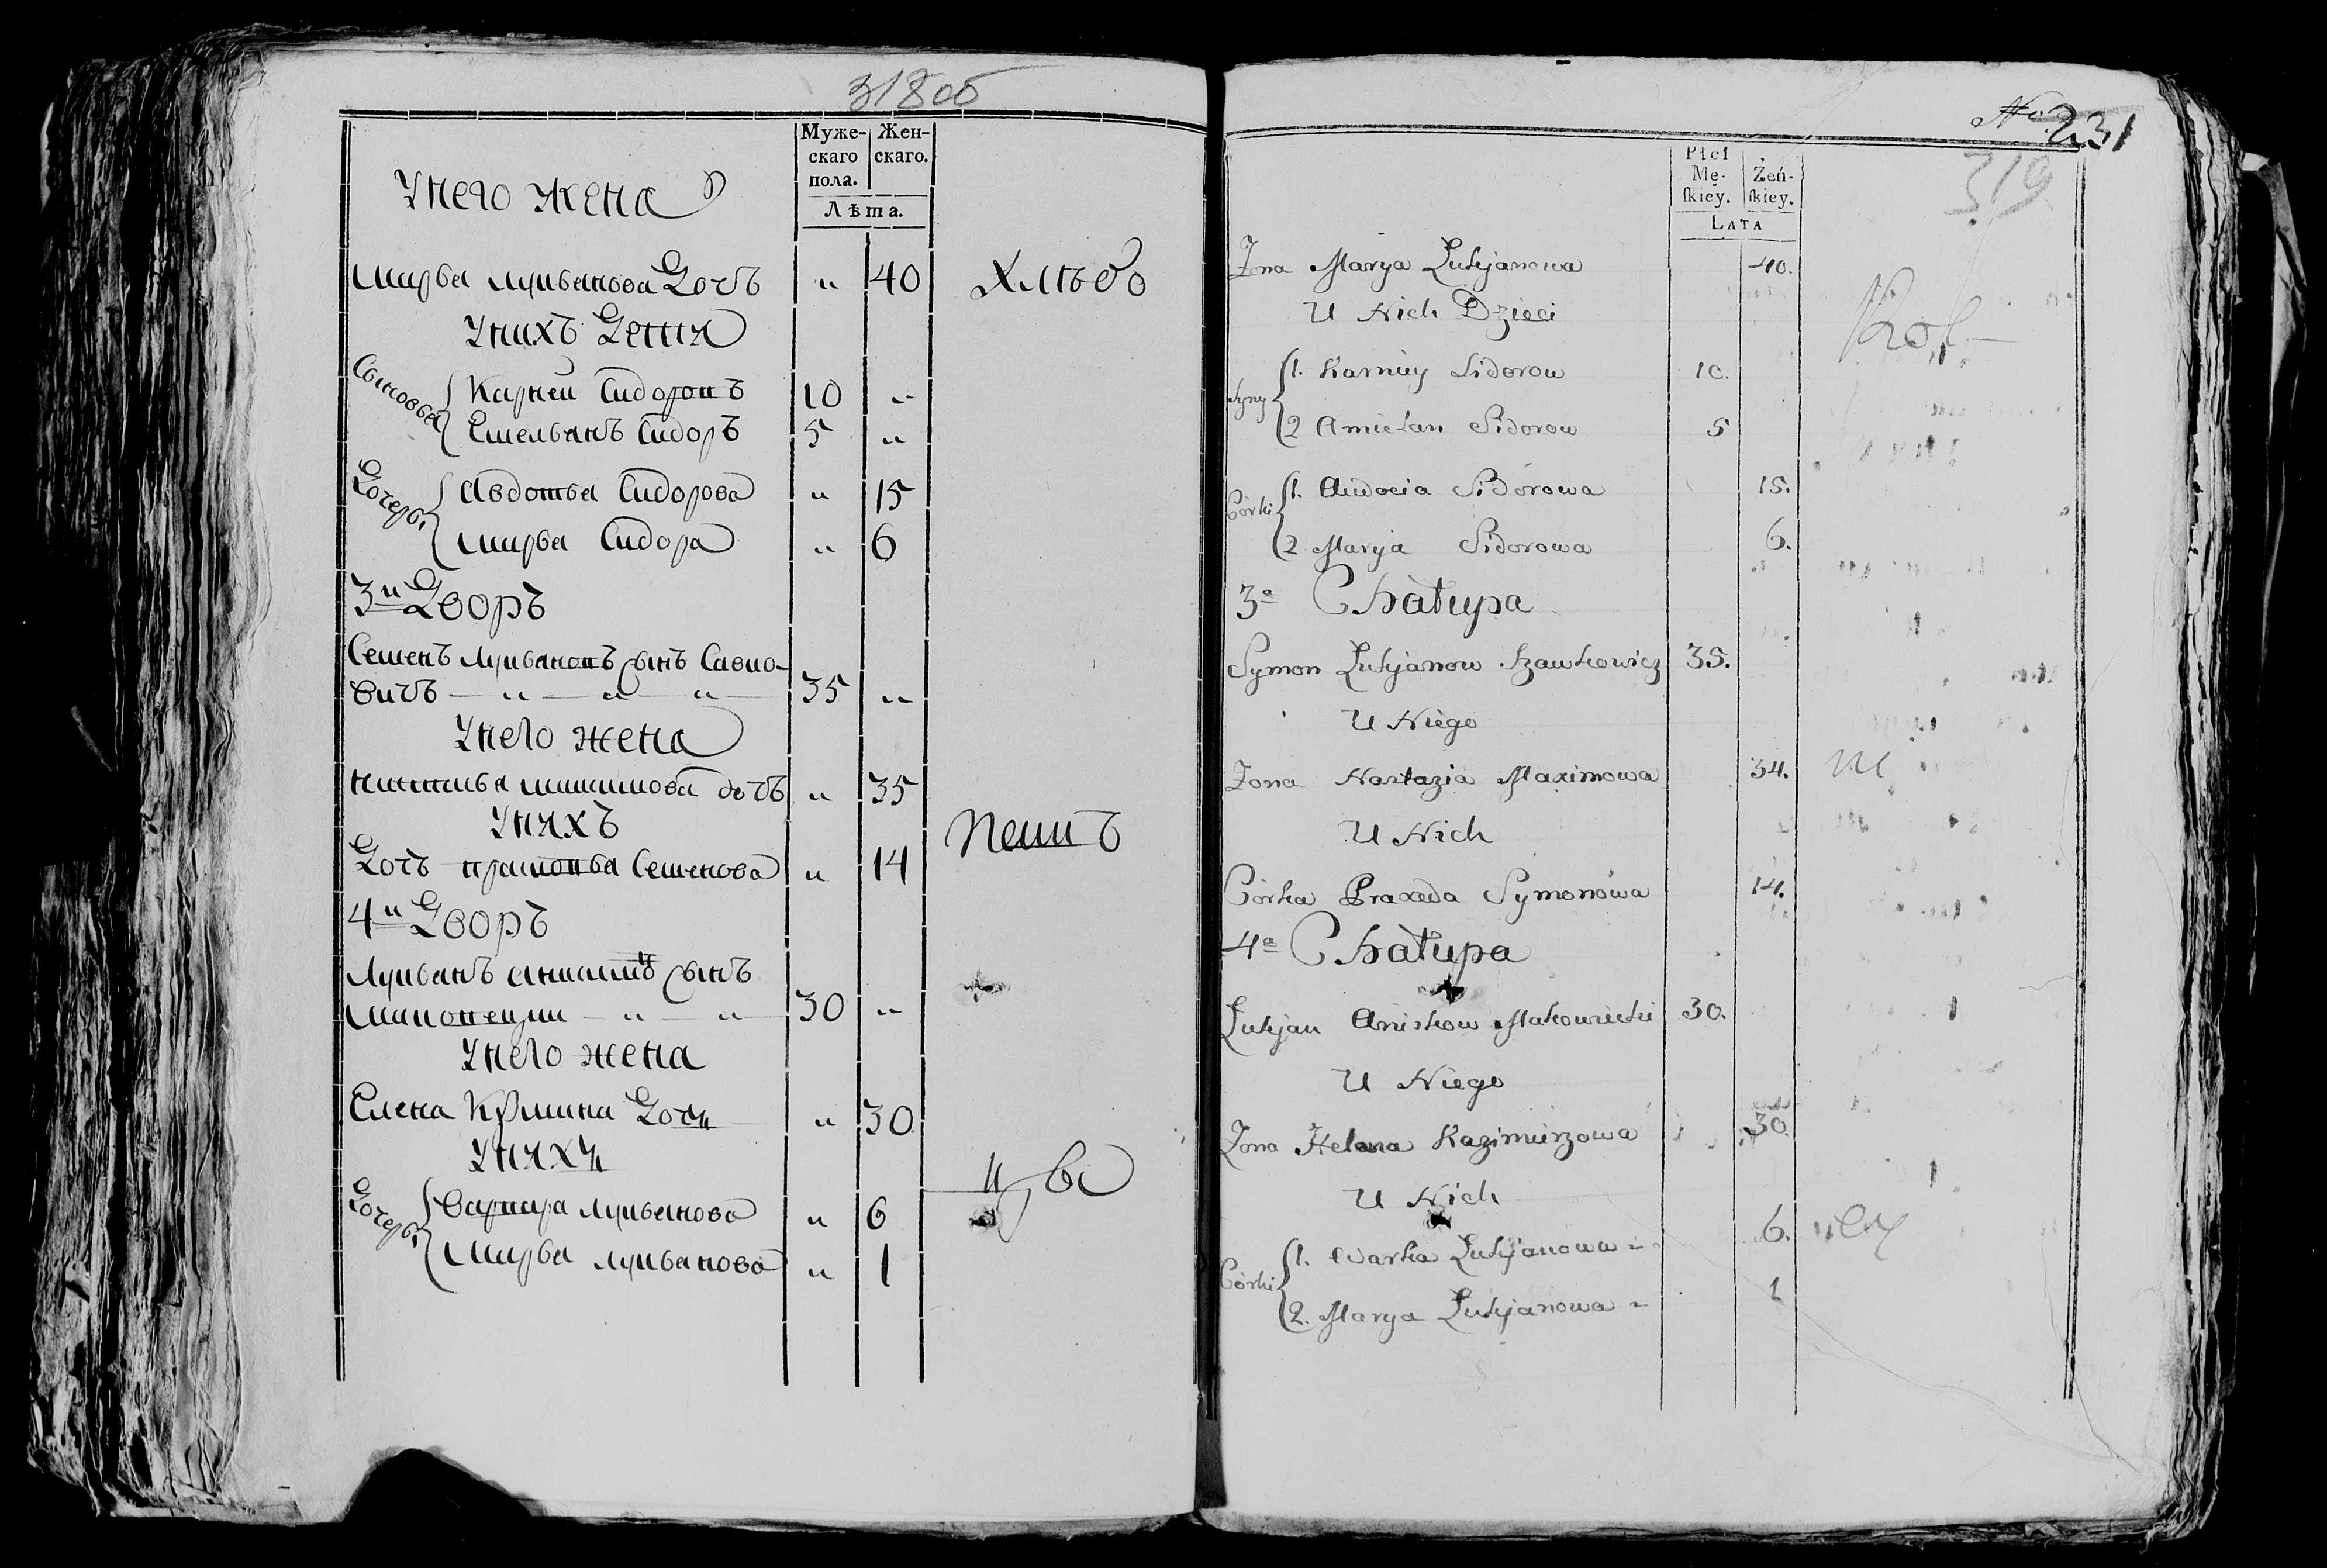 318об
Муже-
скаго
пола.
Жен-
скаго.
Лѣта.
У него жена
Марья Лукьянова дочь " 40
У нихъ дети
Сыновья
Карней Сидоровъ 10 "
Емельянъ Сидоръ 5 "
Дочери
Авдотья Сидорова " 15
Марья Сидора " 6
3й Дворъ
Семенъ Лукьяновъ сынъ Савко-
вичъ " " " 35 "
У него жена
дочъ " 35
У нихъ
Дочъ Семенова " 14
4й Дворъ
Лукьянъ сынъ
" " 30 "
У него жена
Елена дочъ " 30
У нихъ
Дочери
Варвара Лукьянова " 6
Марья Лукьянова " 1
Хлѣбо
пешъ
No 231
319
Płci
Mę-
ſkiey.
Żeń-
ſkiey.
LATA
Zona Marya Łukjanowa 40.
U Nich Dzieci
Syny
1. Karniey Sidorow 10.
2 Amielan Sidorow 5
Córki
1. Audocia Sidorowa 15.
2 Marya Sidorowa 6.
3a Chałupa
Symon Łukjanow Szawkowicz 35.
U Niego
Zona Nastazia Maximowa 34.
U Nich
Córka Praxeda Symonówa 14.
4a Chałupa
Łukjan Aniskow Makowiecki 30.
U Niego
Zona Helena Kazimierzowa 30
U Nich
Córki
1. Warka Łukjanowa 6.
2. Marya Łukjanowa 1